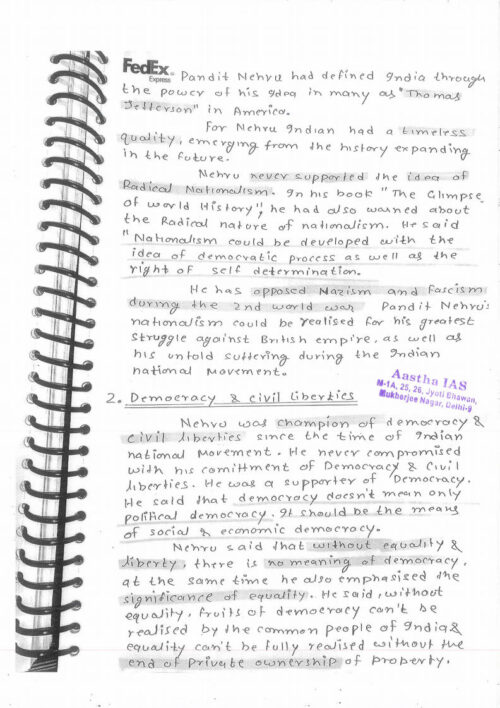 FedEx®
Express
Pandit Nehru had defined India through
the power of his Idea in many as "Thomas
Jefferson" in America.
For Nehru Indian had a timeless
quality, emerging from the history expanding
in the future.
Nehru never supported the idea of
Radical Nationalism. In his book "The Glimpse
of World History", he had also warned about
the Radical nature of nationalism. He said
"Nationalism could be developed with the
idea of democratic process as well as the
right of self determination.
He has opposed Nazism and fascism
during the 2nd world war Pandit Nehru's
nationalism could be realised for his greatest
struggle against British empire, as well as
his untold suffering during the Indian
national Movement.
Aastha IAS
M-1A, 25, 26, Jyoti Bhawan,
Mukherjee Nagar, Delhi-9
2. Democracy & civil liberties
Nehru was champion of democracy &
civil liberties since the time of Indian
national Movement. He never compromised
with his comittment of Democracy & Civil
liberties. He was a supporter of Democracy.
He said that democracy doesn't mean only
political democracy. It should be the means
of social & economic democracy.
Nehru said that without equality &
liberty, there is no meaning of democracy,
at the same time he also emphasised the
significance of equality. He said, without
equality, fruits of democracy can't be
realised by the common people of India &
equality can't be fully realised without the
end of private ownership of property.